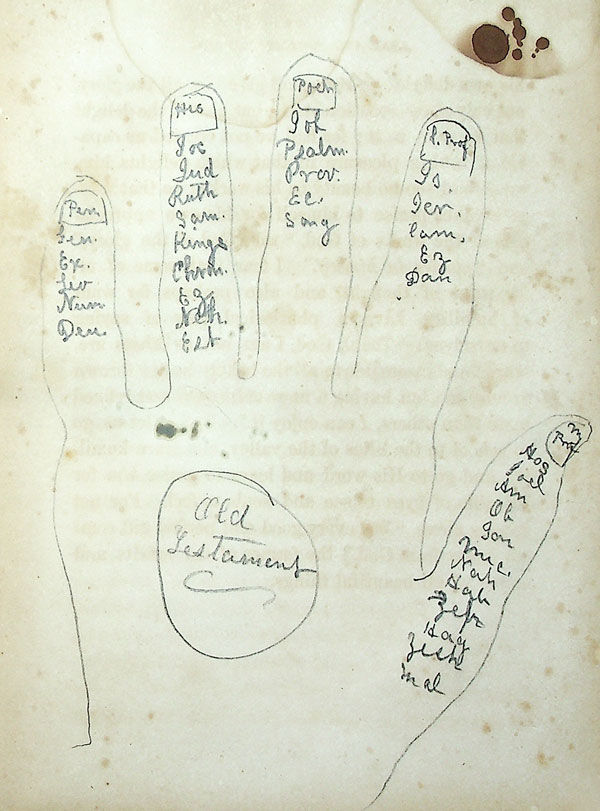 Pen
Gen.
Ex.
Lev
Num
Deu.
His
Jos
Jud
Ruth
Sam.
Kings
Chron.
Ez
Neh.
Est
Poeti
Job
Psalm.
Prov.
Ec.
Song
P. Prof
Is.
Jer.
Lam.
Ez
Dan
Hos
Joel
Am
Ob
Jon
Mic.
Nah
Hab
Zeph
Hag
Zech
Mal
Old
Testament